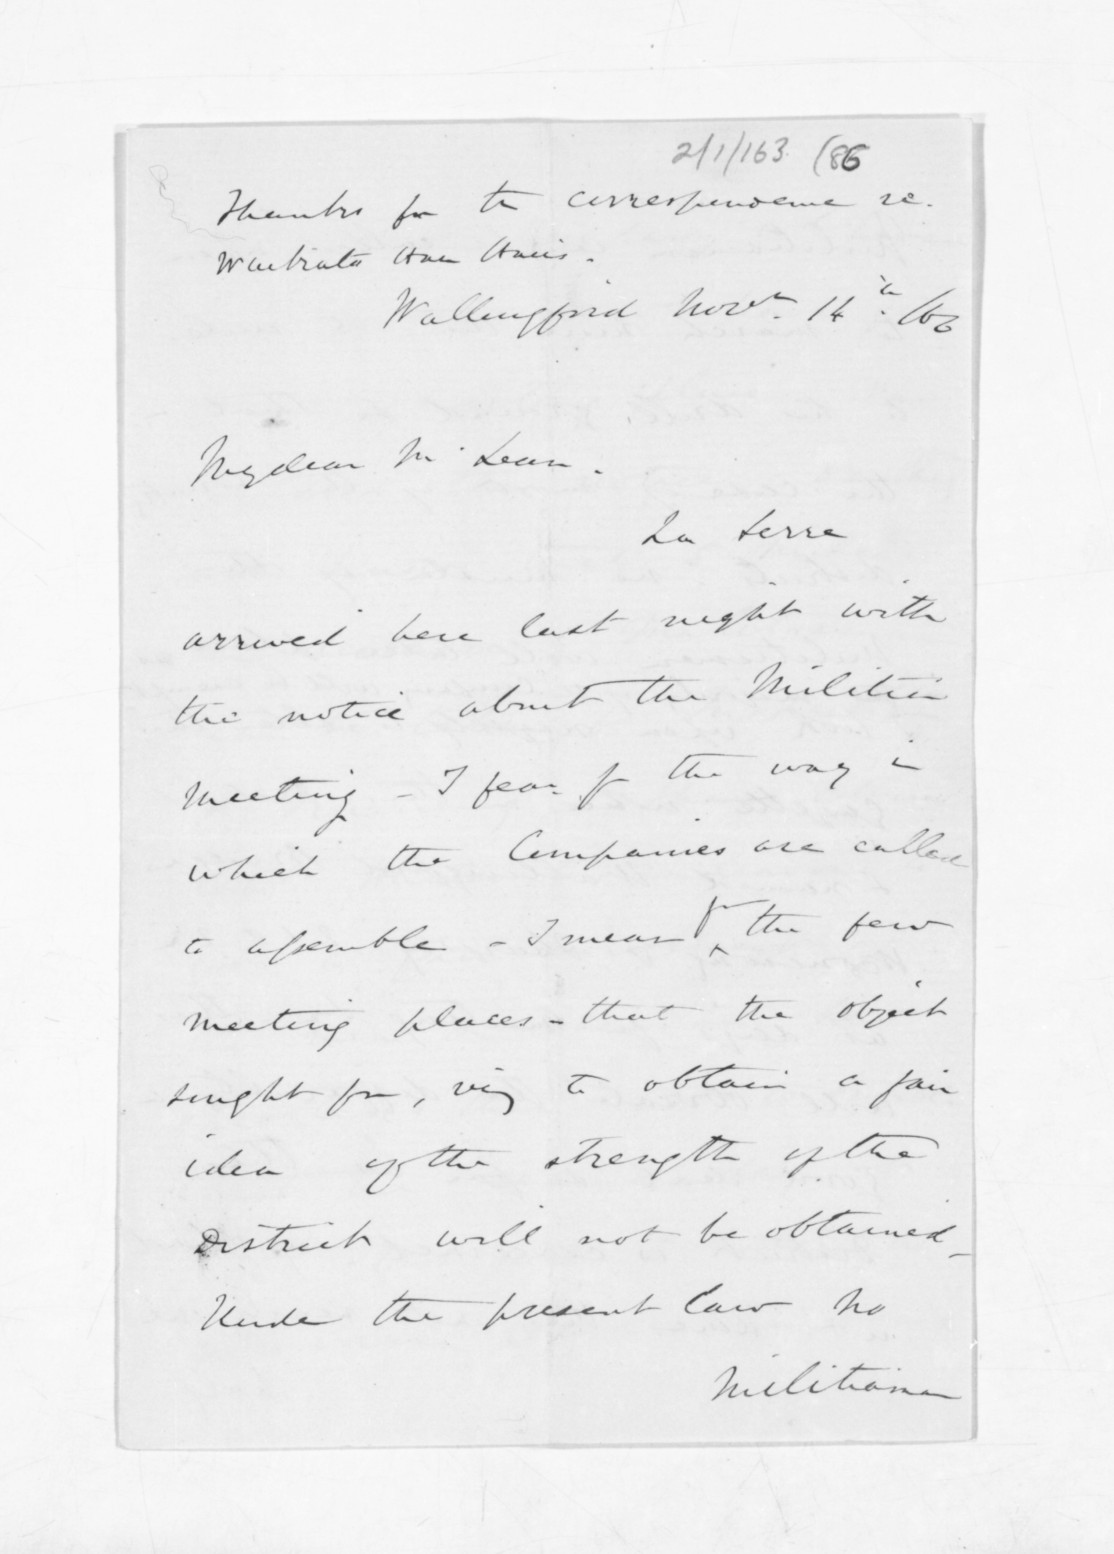 2/1/163. (86
Thanks for the correspondence re.
Hau Haus.
Wallingford Novr. 14th /66
My dear McLean.
La Serre
arrived here last night with
the notice about the Militia
Meeting - I fear fr the way in
which the Companies are called
to assemble - I mean fr the few
meeting places - that the object
sought for, viz to obtain a fair
idea of the strength of the
District will not be obtained -
Under the present law no
Militiaman